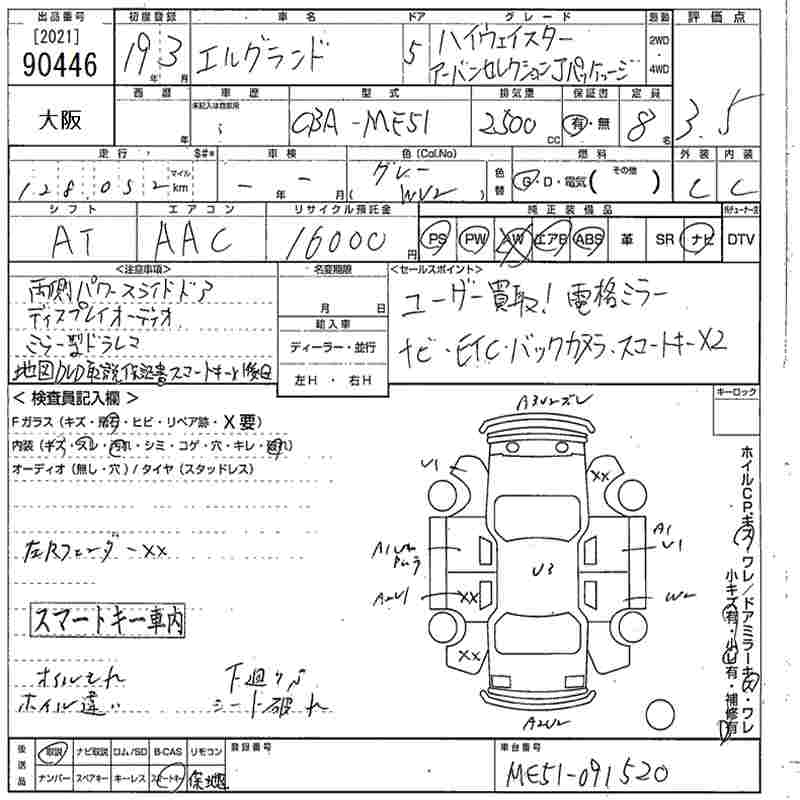 出品番号 初度登録 車名 ドア グレード 駆動 評価点
[2021]
90446 19年 3月 エルグランド 5 ハイウェイスター 2WD
アーバンセレクションJパッケージ 4WD
西暦 車歴 型式 排気量 保証書 定員
大阪 年 未記入は自家用 CBA-ME51 2500cc 有・無 8名 3.5
走行 $#* 車検 色(Col.No) 燃料 外装 内装
128,052 マイル km 年 グレー 色替 G・D・電気( その他 ) C C
WV2
シフト エアコン リサイクル預託金 純正装備品
AT AAC 16000円 PS PW AW エアB ABS 革 SR ナビ DTV
<注意事項> 名変期限 <セールスポイント>
両側パワースライドドア 月 日 ユーザー買取! 電格ミラー
ディスプレイオーディオ 輸入車
ミラー型ドラレコ ディーラー・並行 ナビ・ETC・バックカメラ・スマートキーX2
地図DVD取説保証書スマートキー1後日 左H ・ 右H
<検査員記入欄> キーロック
Fガラス(キズ・飛石・ヒビ・リペア跡・X要) A3U2ズレ
内装(キズ・スレ・汚れ・シミ・コゲ・穴・キレ・破れ) U1 XX
オーディオ(無し・穴)/タイヤ(スタッドレス)
ホイルCPキズ・ワレ/ドアミラーキズ・ワレ
小キズ有・小凹有・補修有
A1 U1
左Rフェンダー XX U3
A2U1 XX W2
スマートキー車内
XX
オイルもれ 下廻りS
ホイル違い シート破れ
A2U2
後送品 取説 ナビ取説 ロム/SD B-CAS リモコン 登録番号 車台番号
ナンバー スペアキー キーレス スマートキー 保地 ME51-091520